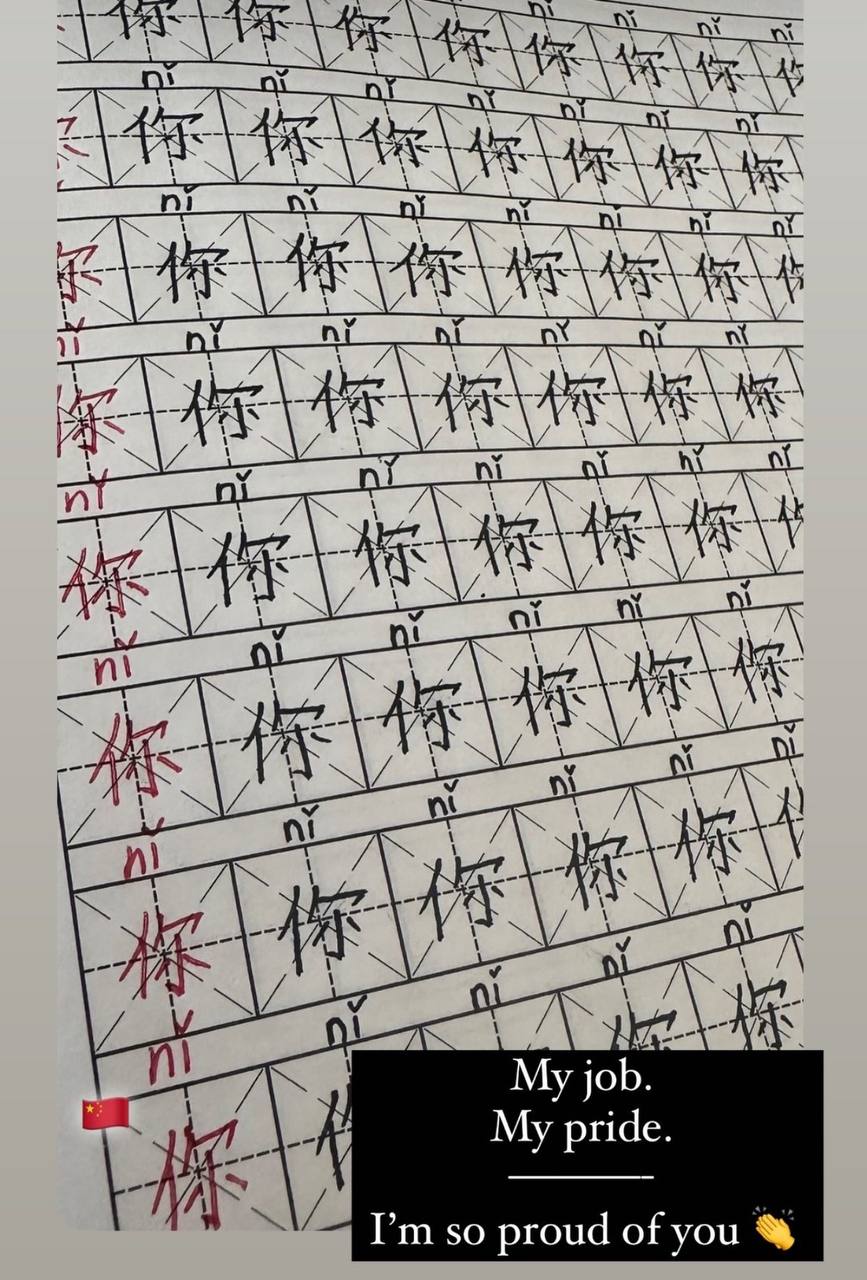 nǐ nǐ nǐ nǐ
你 你 你 你 你 你 你
nǐ nǐ nǐ nǐ nǐ nǐ nǐ
你 你 你 你 你 你 你
nǐ nǐ nǐ nǐ nǐ nǐ nǐ
你 你 你 你 你 你 你
nǐ nǐ nǐ nǐ nǐ nǐ
你 你 你 你 你 你 你
nǐ nǐ nǐ nǐ nǐ nǐ nǐ
你 你 你 你 你 你
nǐ nǐ nǐ nǐ nǐ nǐ
你 你 你 你 你 你
nǐ nǐ nǐ nǐ nǐ nǐ
你 你 你 你 你
nǐ nǐ nǐ nǐ nǐ
你 你 你
My job.
My pride.
I’m so proud of you 👏